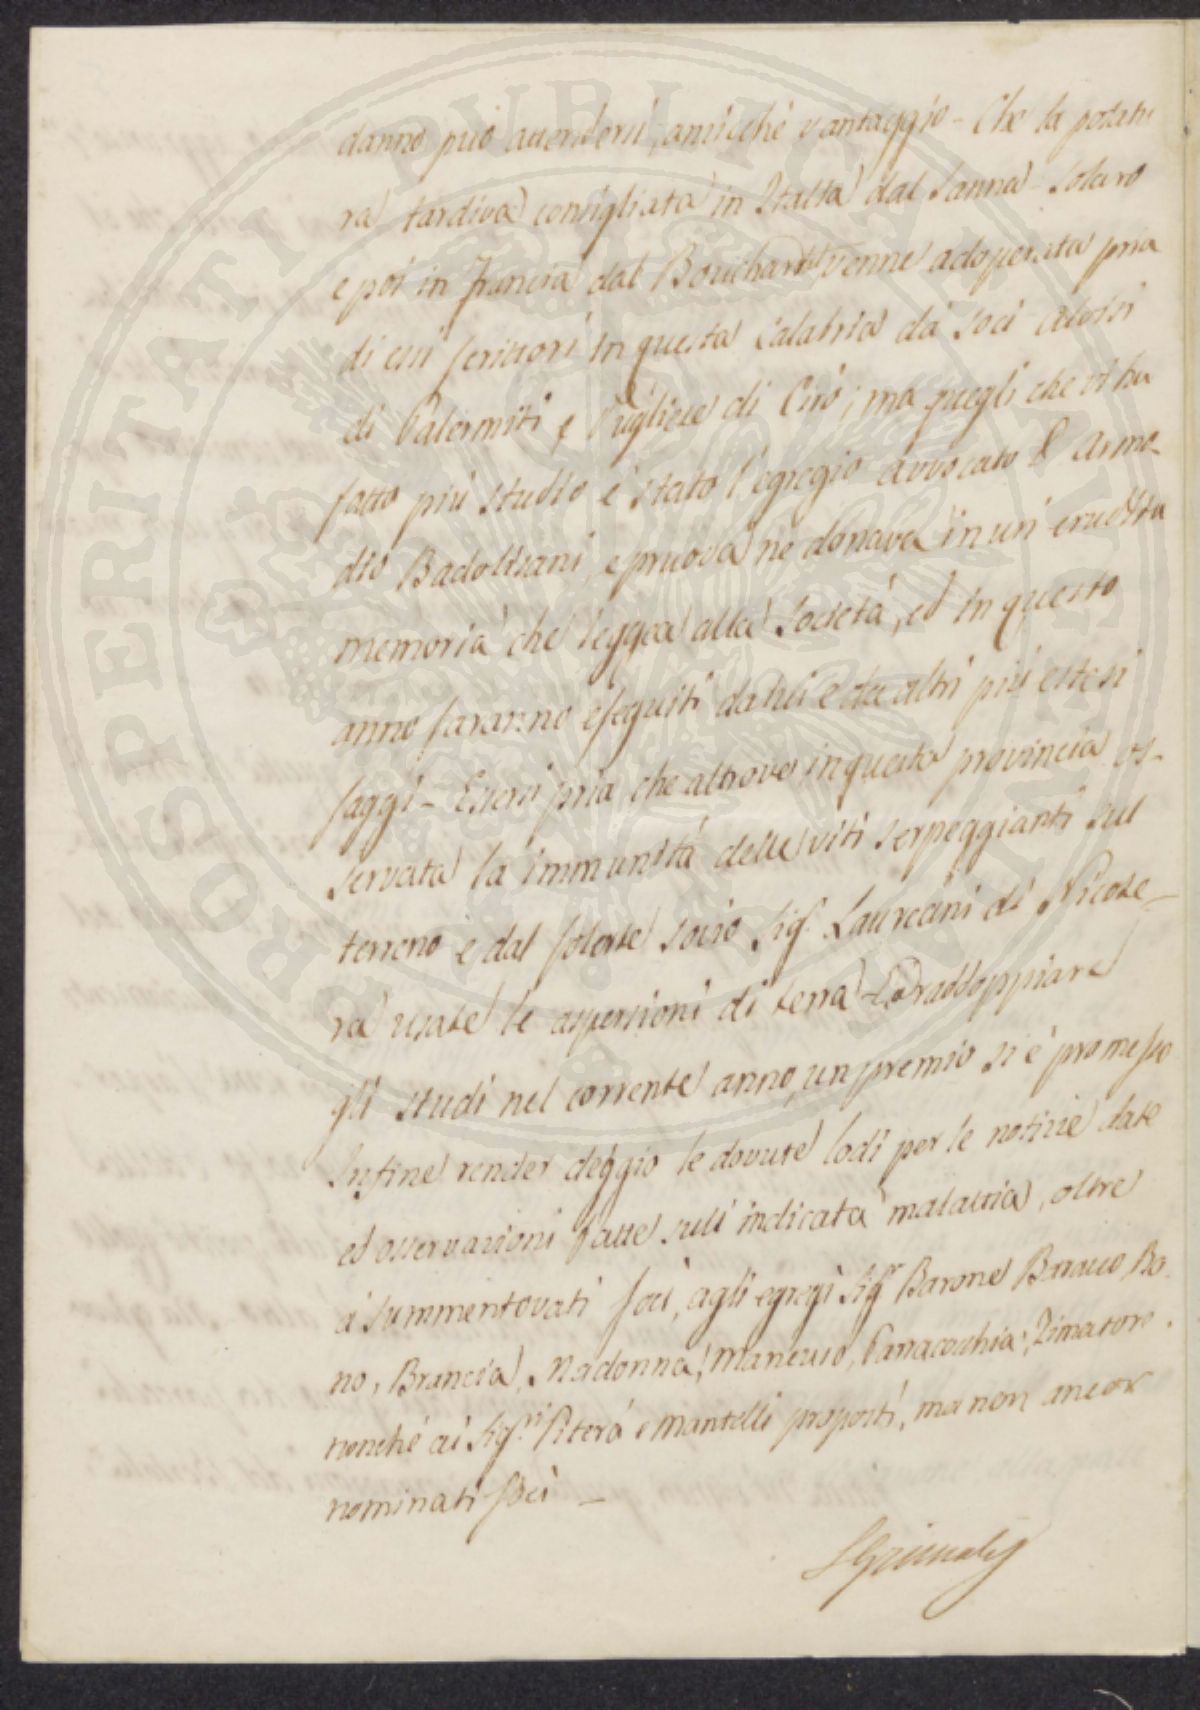 danno può attendersi, anzicchè vantaggio - Che la potatu
ra tardiva consigliata in Italia dal Sanna - Solaro
e poi in Francia dal Bouchard, venne adoperata pria
di essi scrittori in questa Calabria da' soci Aloisi
di Palermiti e Pugliese di Cirò; ma quegli che vi ha
fatto più studio è stato l'egregio avvocato D. Armo-
dio Badolisani, e pruova ne donava in un' erudita
memoria che leggea alla Società, ed in questo
anno saranno eseguiti da lui e da altri più estesi
saggi - Essersi pria che altrove in questa provincia os-
servata la immunità delle viti serpeggianti sul
terreno e dal solerte socio Sig.r Laureani di Nicote-
ra usate le aspersioni di terra - raddoppiare
gli studi nel corrente anno, un premio si è promesso
Infine render deggio le dovute lodi per le notizie date
ed osservazioni fatte sull' indicata malattia, oltre
a' summentovati soci, agli egregi Sig.r Barone Baracco, Bo
no, Brancia, Madonna, Mancuso, Parracochia, Zimatore
nonchè ai Sig.ri Piterà e Mantelli proposti, ma non ancor
nominati soci -
LGrimaldi
PROSPERITATI PVBLICAE AVGENDAE